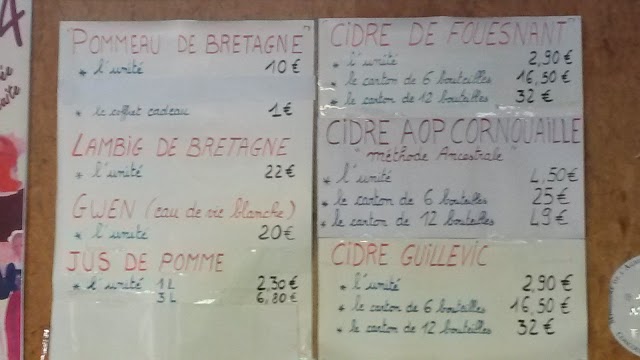 4
POMMEAU DE BRETAGNE
* l'unité 10 €
* le coffret cadeau 1 €
LAMBIG DE BRETAGNE
* l'unité 22 €
GWEN (eau de vie blanche)
* l'unité 20 €
JUS DE POMME
* l'unité 1 L 2,30 €
3 L 6,80 €
CIDRE DE FOUESNANT
* l'unité 2,90 €
* le carton de 6 bouteilles 16,50 €
* le carton de 12 bouteilles 32 €
CIDRE AOP CORNOUAILLE
"méthode Ancestrale"
* l'unité 4,50 €
* le carton de 6 bouteilles 25 €
* le carton de 12 bouteilles 49 €
CIDRE GUILLEVIC
* l'unité 2,90 €
* le carton de 6 bouteilles 16,50 €
* le carton de 12 bouteilles 32 €